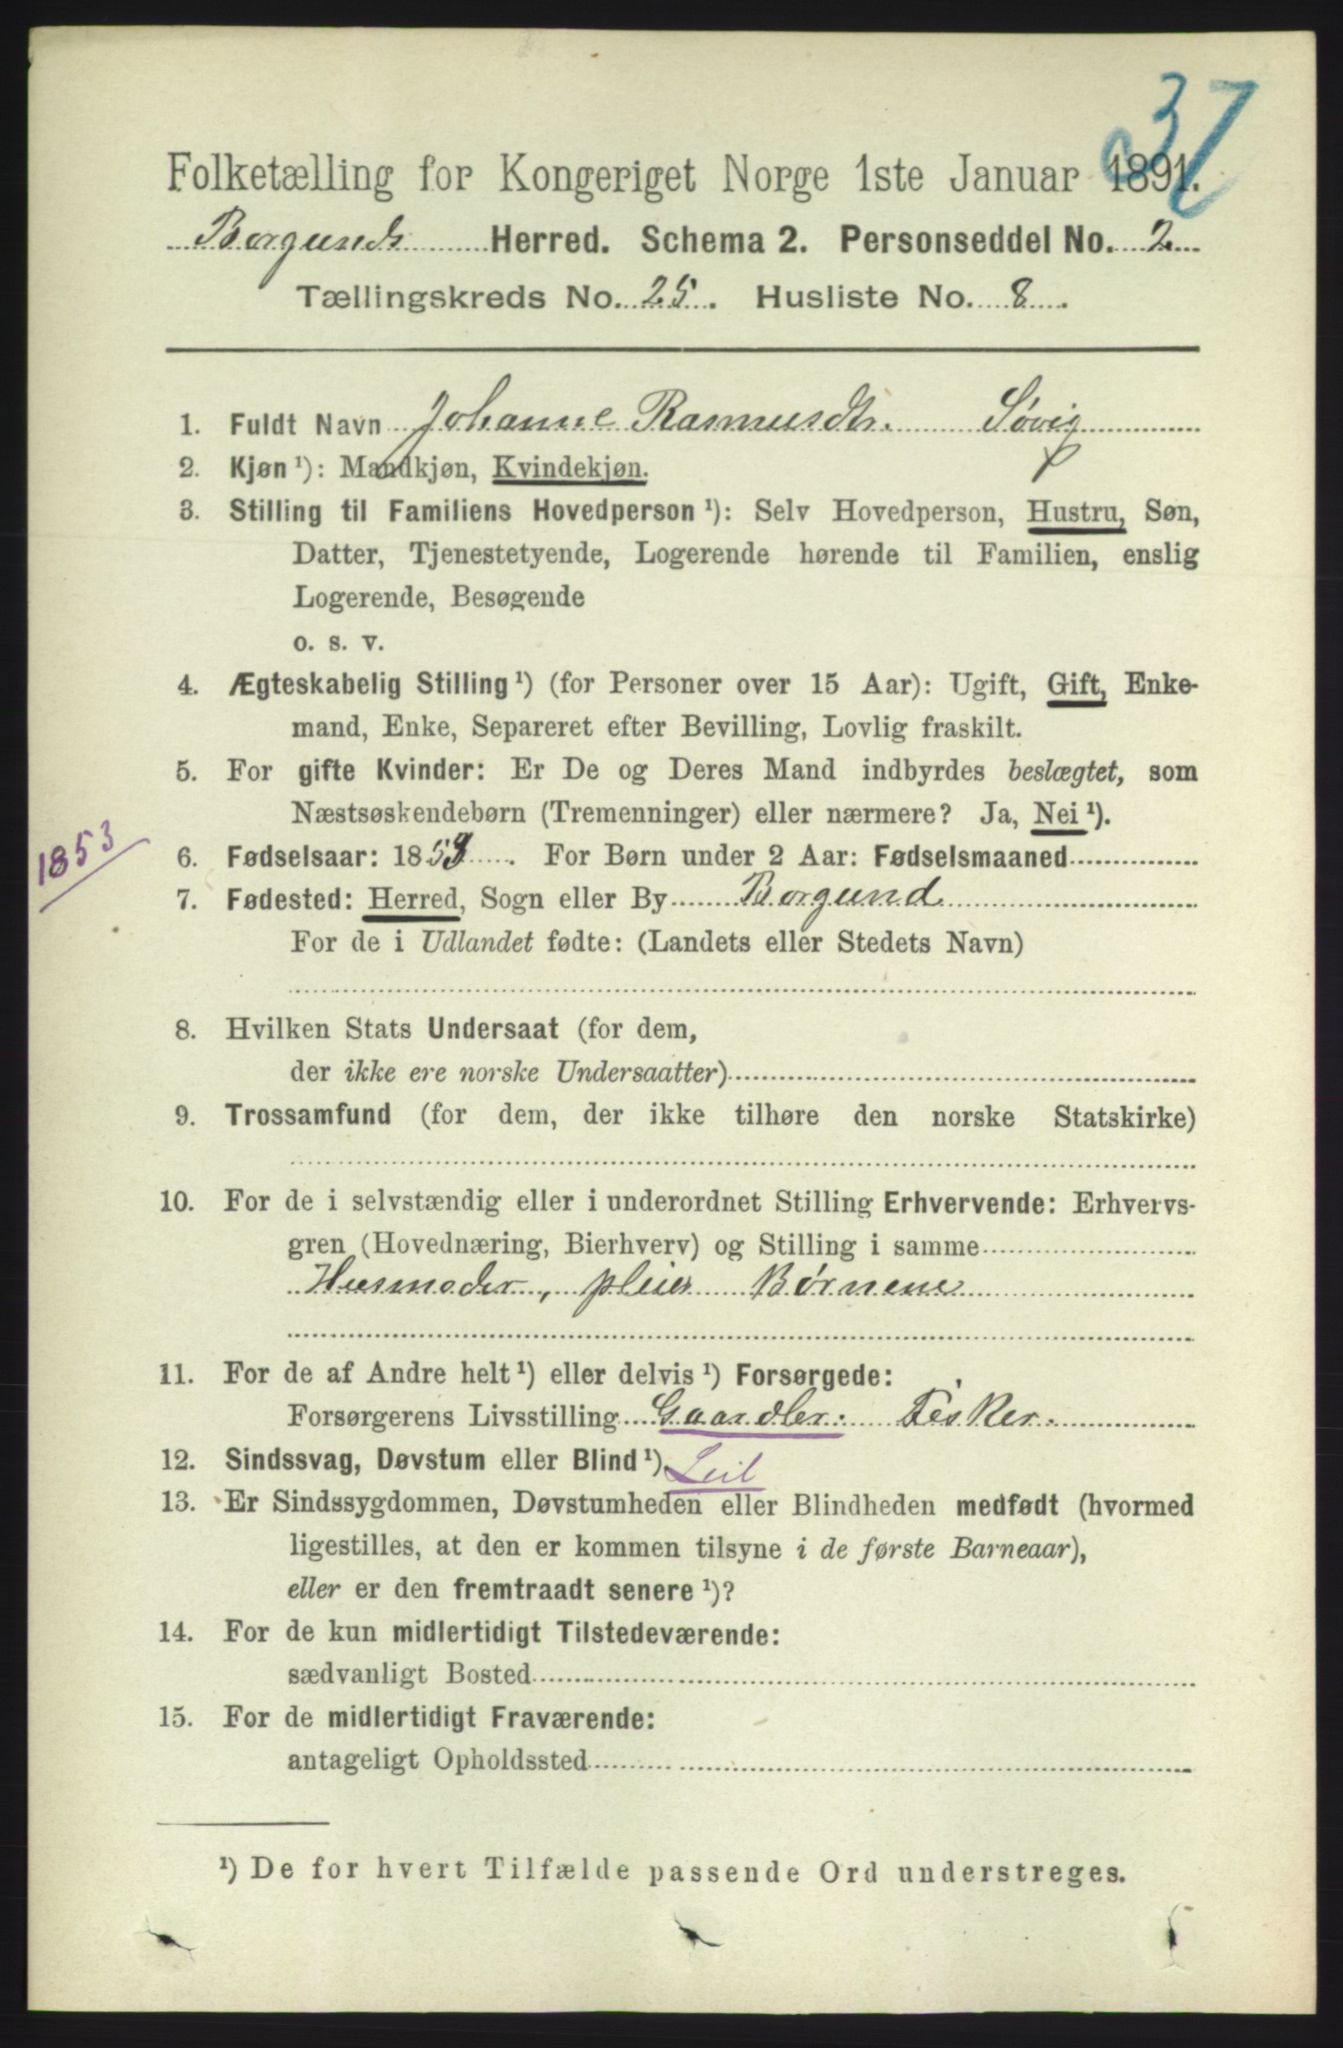 37
Folketælling for Kongeriget Norge 1ste Januar 1891.
Borgunds Herred. Schema 2. Personseddel No. 2
Tællingskreds No. 25. Husliste No. 8.
1. Fuldt Navn Johanne Rasmusdtr. Søvig
2. Kjøn ¹): Mandkjøn, Kvindekjøn.
3. Stilling til Familiens Hovedperson ¹): Selv Hovedperson, Hustru, Søn,
Datter, Tjenestetyende, Logerende hørende til Familien, enslig
Logerende, Besøgende
o. s. v.
4. Ægteskabelig Stilling ¹) (for Personer over 15 Aar): Ugift, Gift, Enke-
mand, Enke, Separeret efter Bevilling, Lovlig fraskilt.
5. For gifte Kvinder: Er De og Deres Mand indbyrdes beslægtet, som
Næstsøskendebørn (Tremenninger) eller nærmere? Ja, Nei ¹).
1853
6. Fødselsaar: 1853. For Børn under 2 Aar: Fødselsmaaned
7. Fødested: Herred, Sogn eller By Borgund
For de i Udlandet fødte: (Landets eller Stedets Navn)
8. Hvilken Stats Undersaat (for dem,
der ikke ere norske Undersaatter)
9. Trossamfund (for dem, der ikke tilhøre den norske Statskirke)
10. For de i selvstændig eller i underordnet Stilling Erhvervende: Erhvervs-
gren (Hovednæring, Bierhverv) og Stilling i samme
Husmoder, pleier Børnene
11. For de af Andre helt ¹) eller delvis ¹) Forsørgede:
Forsørgerens Livsstilling Gaardbr. Fisker.
12. Sindssvag, Døvstum eller Blind ¹). Leil
13. Er Sindssygdommen, Døvstumheden eller Blindheden medfødt (hvormed
ligestilles, at den er kommen tilsyne i de første Barneaar),
eller er den fremtraadt senere ¹)?
14. For de kun midlertidigt Tilstedeværende:
sædvanligt Bosted
15. For de midlertidigt Fraværende:
antageligt Opholdssted
¹) De for hvert Tilfælde passende Ord understreges.